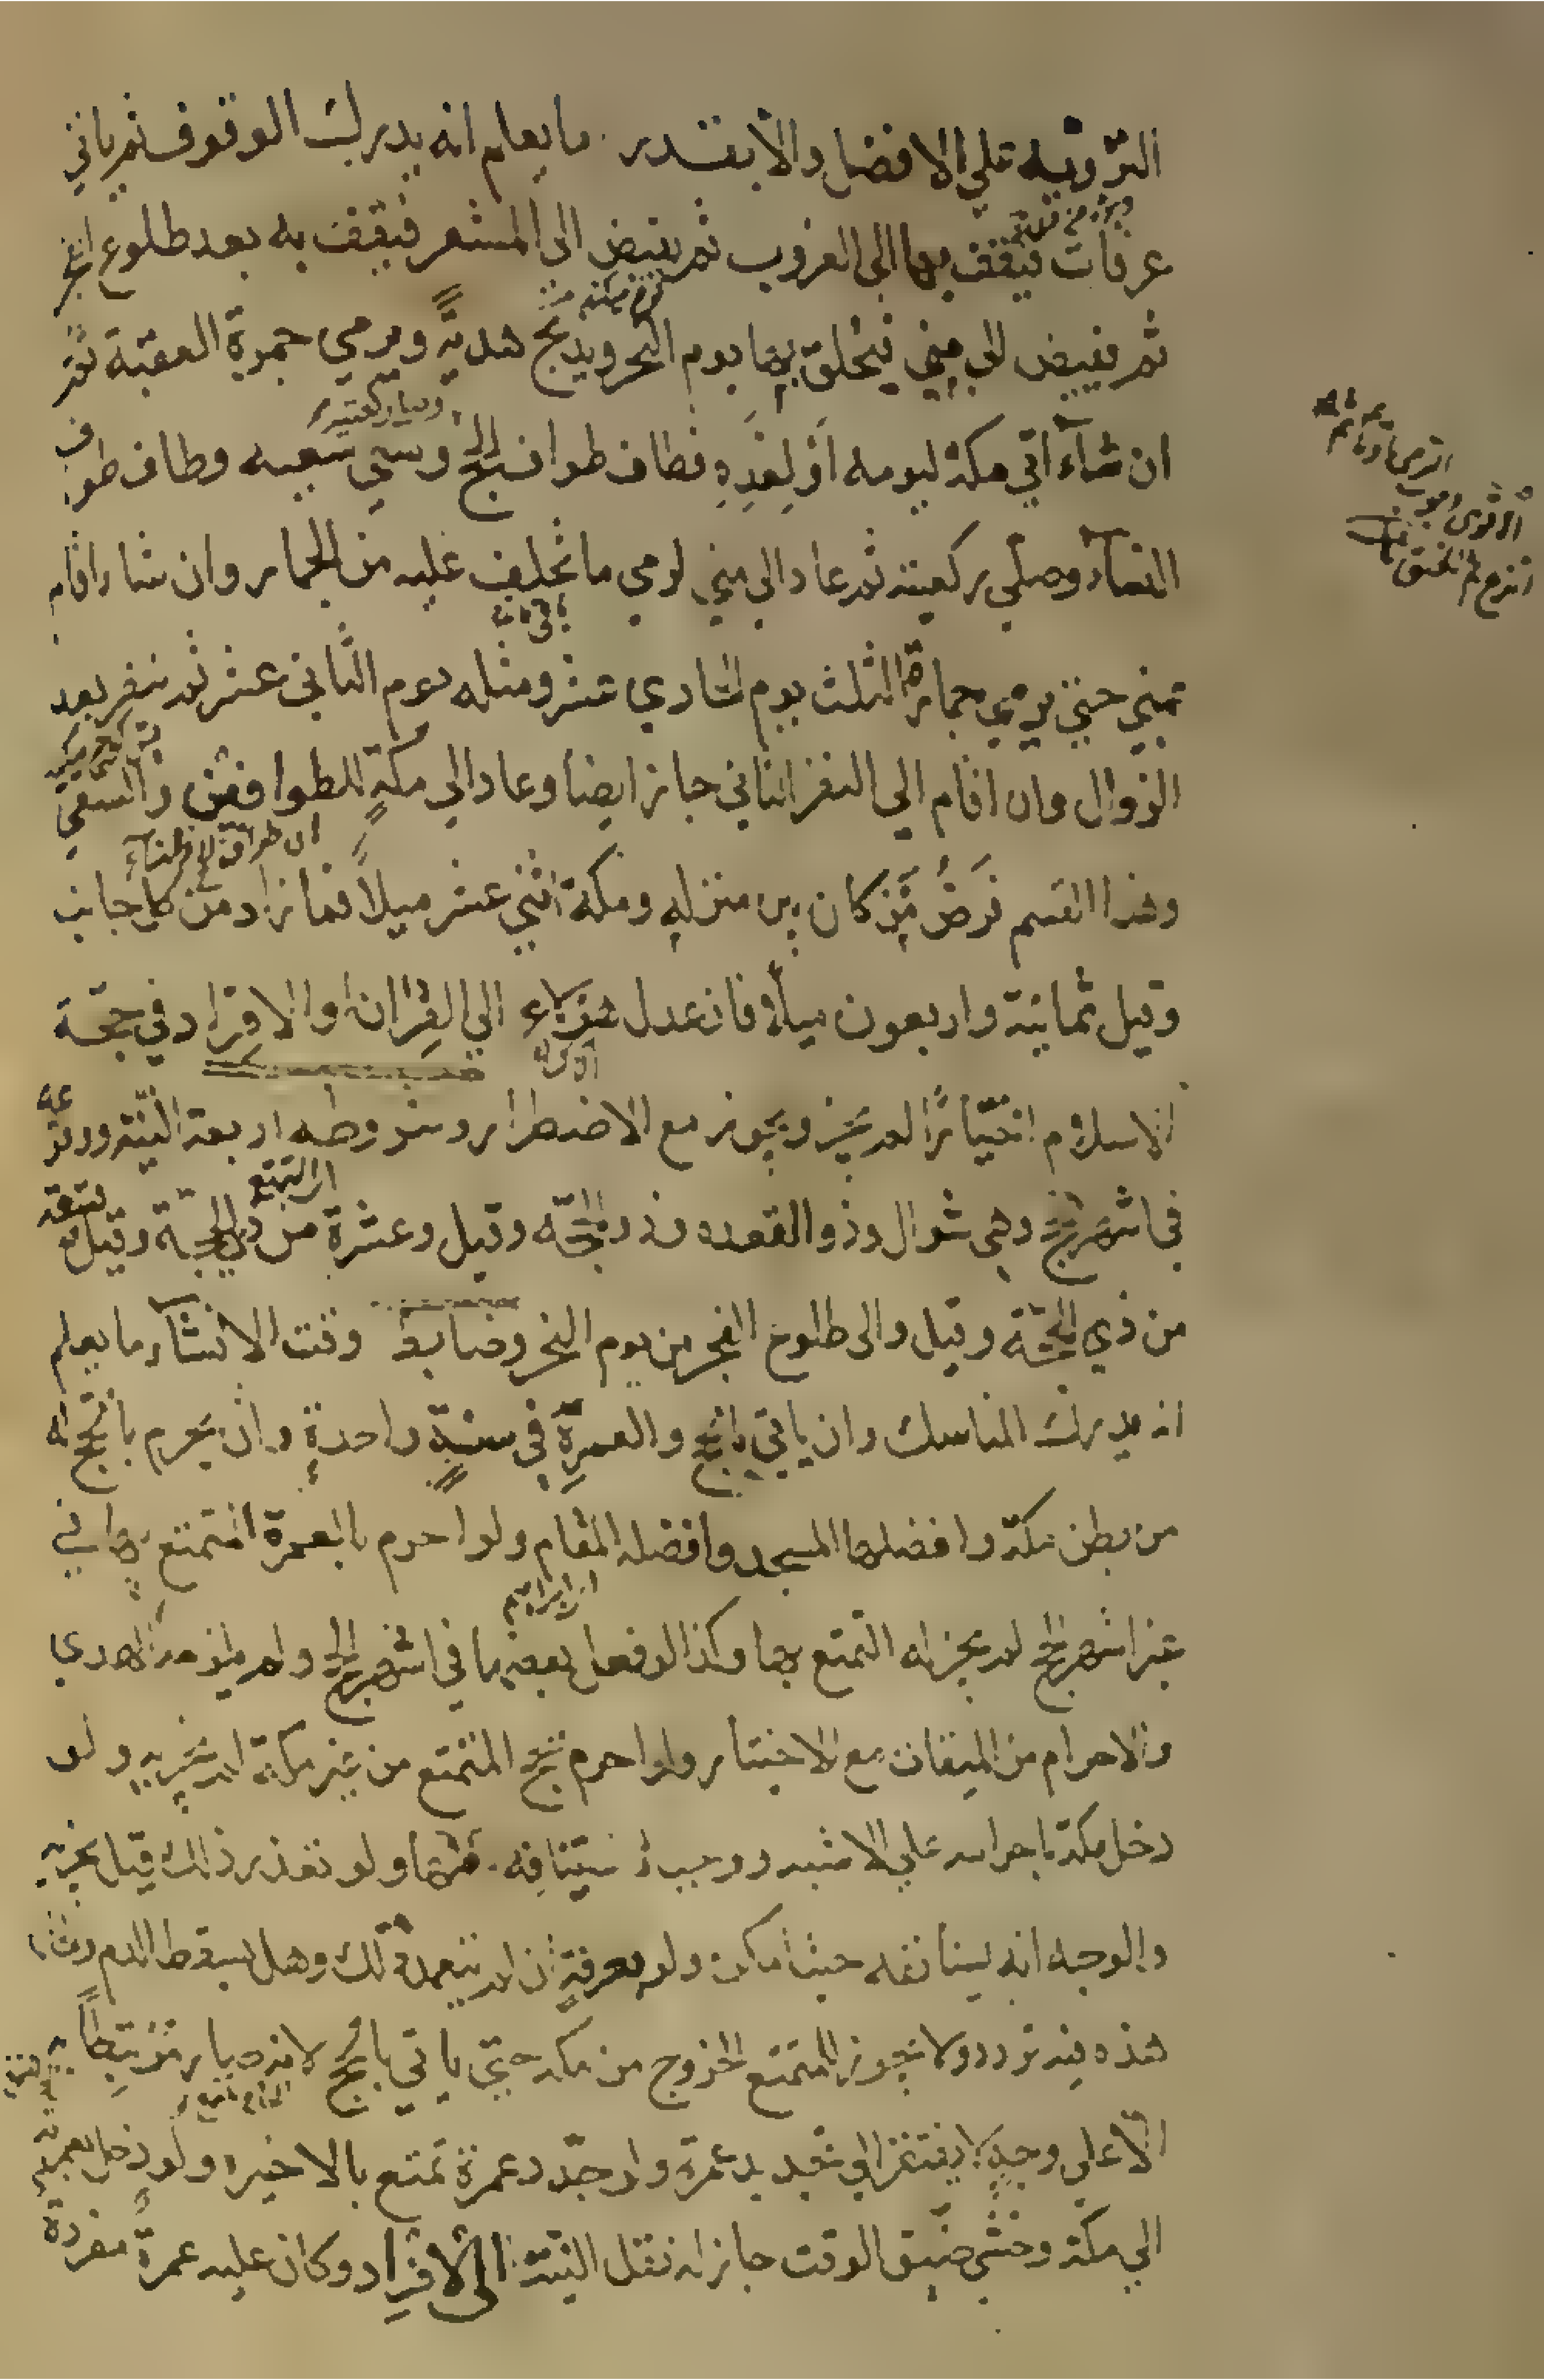 التروية على الافضل والا بقدر ما يعلم انه يدرك الوقوف ثم ياتي
عرفات فيقف بها الى الغروب ثم يفيض الى المشعر فيقف به بعد طلوع الفجر
ثم يفيض الى منى فيحلق بها يوم النحر ويذبح هديه ويرمي جمرة العقبة ثم
ان شآء اتى مكة ليومه او لغده فطاف طواف الحج وسعى سعيه وطاف طواف
وصلى ركعتيه
النسآء وصلى ركعتيه ثم عاد الى منى لرمي ما تخلف عليه من الجمار وان شاء اقام
بمنى حتى يرمي جماره الثلث يوم الحادي عشر ومثله يوم الثاني عشر ثم ينفر بعد
الزوال وان اقام الى النفر الثاني جاز ايضا وعاد الى مكة للطوافين والسعي
وهذا القسم فرض من كان بين منزله ومكة اثنى عشر ميلا فما زاد من كل جانب
وقيل ثمانية واربعون ميلا فان عدل هؤلاء الى القران او الافراد في حجة
الاسلام اختيارا لم يجز ويجوز مع الاضطرار وشروطه اربعة النية ووقوعه
اي التمتع
في اشهر الحج وهي شوال وذو القعده وذو الحجه وقيل وعشرة من ذي الحجة وقيل تسعة
من ذي الحجة وقيل والى طلوع الفجر من يوم النحر وضابط وقت الانشآء ما يعلم
انه يدرك المناسك وان ياتي بالحج والعمرة في سنة واحدة وان يحرم بالحج له
من بطن مكة وافضلها المسجد وافضله المقام ولو احرم بالعمرة المتمتع بها في
غير اشهر الحج لم يجز له التمتع بها وكذا لو فعل بعضها في اشهر الحج ولم يلزمه الهدي
والاحرام من الميقات مع الاختيار ولو احرم بحج المتمتع من غير مكة لم يجزيه ولو
دخل مكة باحرامه على الاشبه ووجب استينافه منها ولو تعذر ذلك قيل يجزيه
والوجه انه يستانفه حيث امكن ولو بعرفة ان لم يتعمد ذلك وهل يسقط الدم والحال
هذه فيه تردد ولا يجوز للمتمتع الخروج من مكه حتى ياتي بالحج لانه صار مرتبطا به
الا على وجه لا يفتقر الى تجديد عمرة ولو جدد عمرة تمتع بالاخيره ولو دخل بعمرته
الى مكة وخشي ضيق الوقت جاز له نقل النية الى الافراد وكان عليه عمرة مفردة